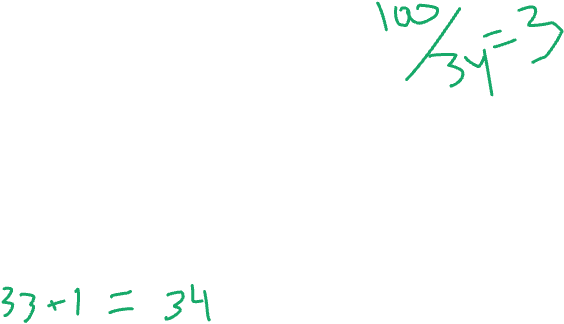 100/34=3
33+1=34